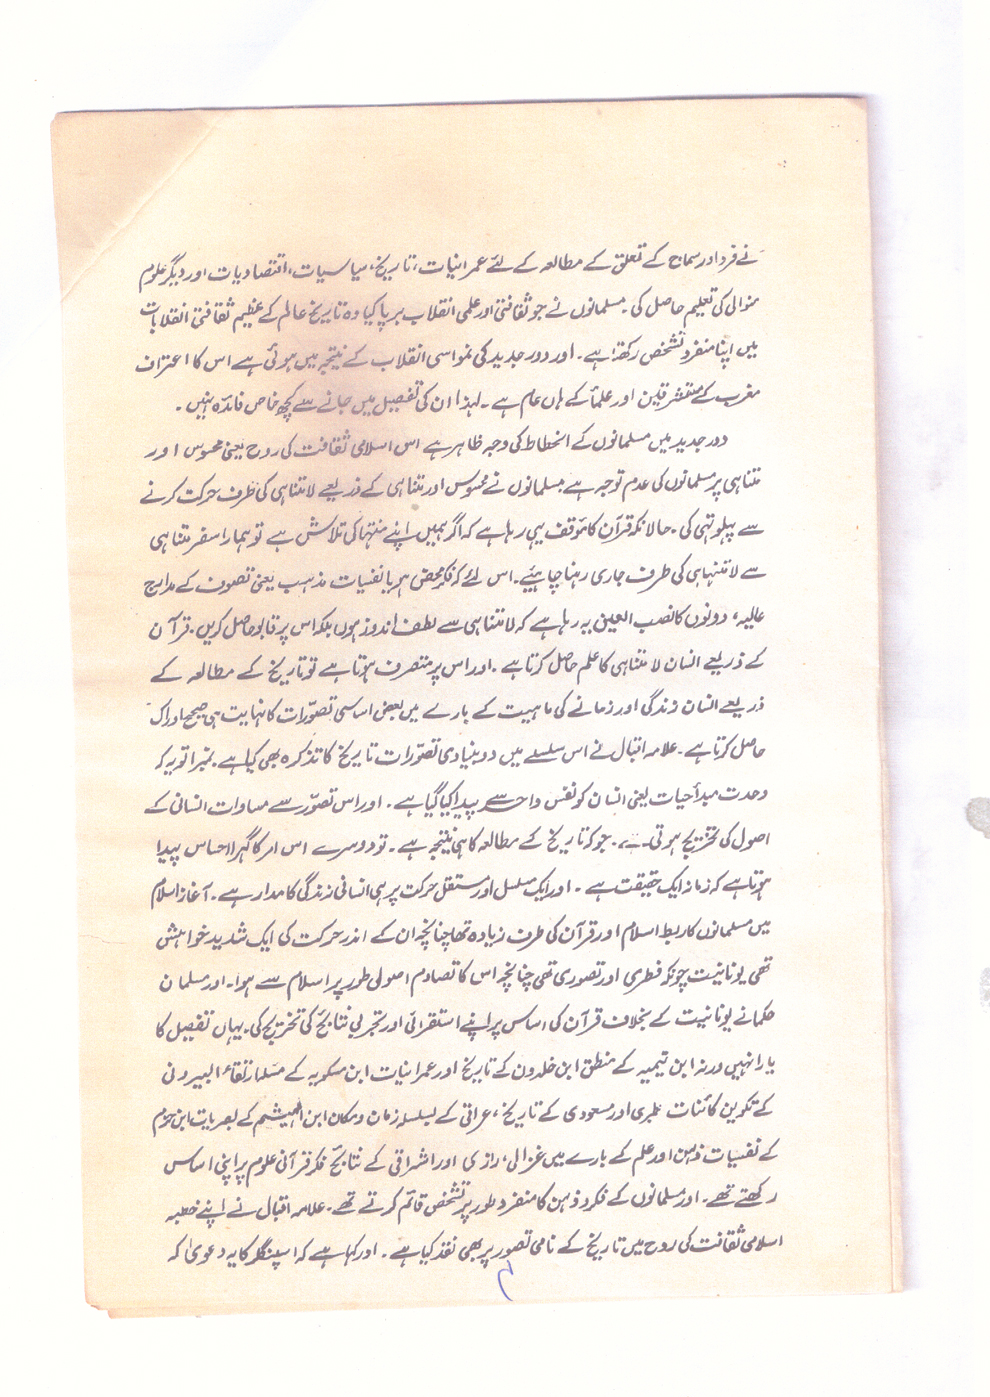 نے فرد اور سماج کے تعلق کے مطالعہ کے لئے عمرانیات، تاریخ، سیاسیات، اقتصادیات اور دیگر علوم
عوالی کی تعلیم حاصل کی۔ مسلمانوں نے جو ثقافتی اور علمی انقلاب برپا کیا وہ تاریخ عالم کے عظیم ثقافتی انقلابات
میں اپنا منفرد تشخص رکھتا ہے۔ اور دور جدید کی نمو اسی انقلاب کے نتیجہ میں ہوئی ہے اس کا اعتراف
مغرب کے مستشرقین اور علمأ کے ہاں عام ہے۔ لہذا ان کی تفصیل میں جانے سے کچھ خاص فائدہ نہیں۔
دور جدید میں مسلمانوں کے انحطاط کی وجہ ظاہر ہے اس اسلامی ثقافت کی روح یعنی محسوس اور
متناہی پر مسلمانوں کی عدم توجہ ہے مسلمانوں نے محسوس اور متناہی کے ذریعے لامتناہی کی طرف حرکت کرنے
سے پہلو تہی کی۔ حالانکہ قرآن کا مؤقف یہی رہا ہے کہ اگر ہمیں اپنے منتہا کی تلاش ہے تو ہمارا سفر متناہی
سے لامتنہاہی کی طرف جاری رہنا چاہیئے۔ اس لئے کہ فکر محض ہو یا نفسیات مذہب یعنی تصوف کے مدارج
عالیہ، دونوں کا نصب العین یہ رہا ہے کہ لامتناہی سے لطف اندوز ہوں بلکہ اس پر قابو حاصل کریں۔ قرآن
کے ذریعے انسان لامتناہی کا علم حاصل کرتا ہے۔ اور اس پر متصرف ہوتا ہے تو تاریخ کے مطالعہ کے
ذریعے انسان زندگی اور زمانے کی ماہیت کے بارے میں بعض اساسی تصوّرات کا نہایت ہی صحیح ادراک
حاصل کرتا ہے۔ علامہ اقبال نے اس سلسلے میں دو بنیادی تصوّرات تاریخ کا تذکرہ بھی کیا ہے۔ نمبر۱ تو یہ کہ
وحدت مبدأحیات یعنی انسان کو نفس واحد سے پیدا کیا گیا ہے۔ اور اس تصوّر سے مساوات انسانی کے
اصول کی تخریج ہوتی ہے۔ جو کہ تاریخ کے مطالعہ کا ہی نتیجہ ہے۔ تو دوسرے اس امر کا گہرا احساس پیدا
ہوتا ہے کہ زمانہ ایک حقیقت ہے۔ اور ایک مسلسل اور مستقل حرکت پر ہی انسانی زندگی کا مدار ہے۔ آغاز اسلام
میں مسلمانوں کا ربط اسلام اور قرآن کی طرف زیادہ تھا چنانچہ ان کے اندر حرکت کی ایک شدید خواہش
تھی یونانیت چونکہ فطری اور تصوری تھی چنانچہ اس کا تصادم اصولی طور پر اسلام سے ہوا۔ اور مسلمان
حکمانے یونانیت کے بخلاف قرآن کی اساس پر اپنے استقرائی اور تجربی نتائج کی تخریج کی۔ یہاں تفصیل کا
یارا نہیں ورنہ ابن تیمیہ کے منطق ابن خلدون کے تاریخ اور عمرانیات ابن مسکویہ کے مسئلہ ارتقاء البیرونی
کے تکوین کائنات طبری اور مسعودی کے تاریخ، عراقی کے بسلسلہ زمان و مکان ابن الہیشم کے بصریات ابن حزم
کے نفسیات ذہن اور علم کے بارے میں غزالی، رازی اور اشراقی کے نتائج فکر قرآنی علوم پر اپنی اساس
رکھتے تھے۔ اور مسلمانوں کے فکر و ذہن کا منفرد طور پر تشخص قائم کرتے تھے۔ علامہ اقبال نے اپنے خطبہ
اسلامی ثقافت کی روح میں تاریخ کے نامی تصور پر بھی نقد کیا ہے۔ اور کہا ہے کہ اسپنگلر کا یہ دعویٰ کہ